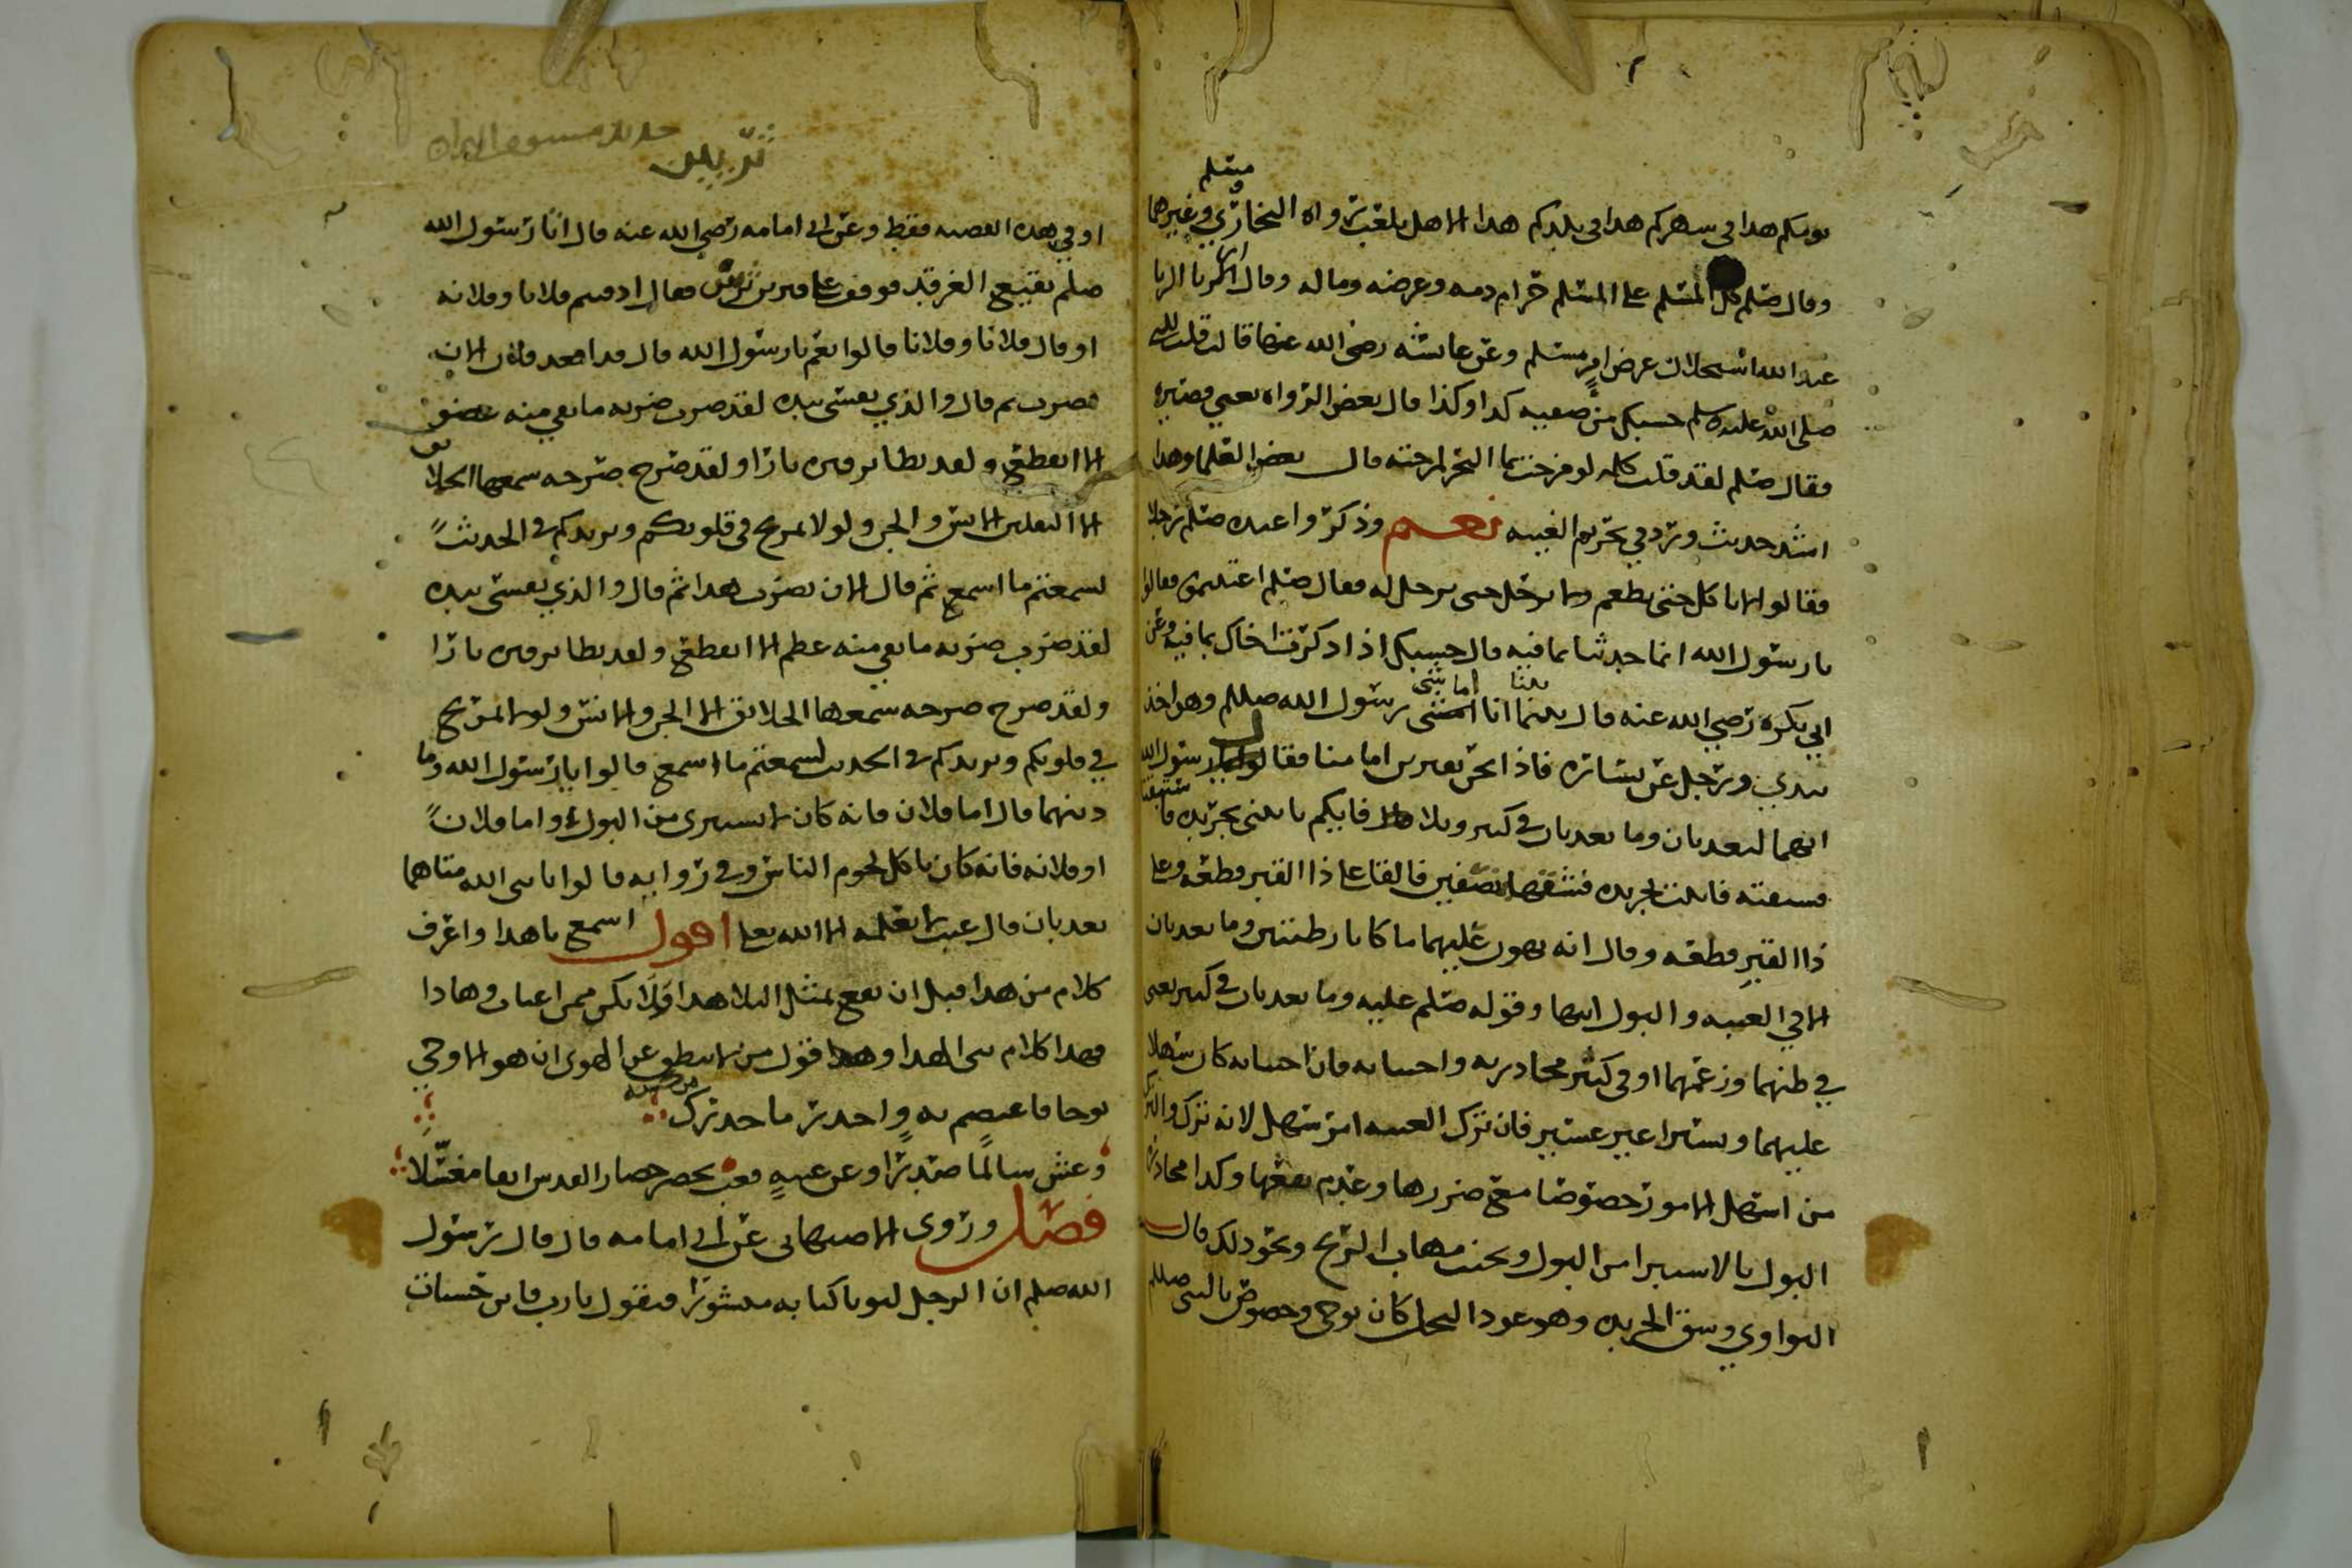 مسلم
يومكم هذا في شهركم هذا في بلدكم هذا الا هل بلغت رواه البخاري وغيرهما
وقال صلم كل المسلم على المسلم حرام دمه وعرضه وماله وقال اربا الربا
عند الله استحلال عرض امرٍ مسلم وعن عائشه رضي الله عنها قالت قلت للنبي
صلى الله عليه وسلم حسبك من صفيه كذا وكذا قال بعض الرواه يعني قصيره
فقال صلم لقد قلت كلمه لو مزجت بها البحر لمزجته قال بعض العلما وهذا
اشد حديث ورد في تحريم الغيبه نعم وذكروا عنده صلم رجلا
فقالوا لا ياكل حتى يطعم ولا يرحل حتى يرحل له فقال صلم اغتبتموه فقالوا
يا رسول الله انما حدثنا بما فيه قال حسبك اذا ذكرت اخاك بما فيه وعن
ابي بكره رضي الله عنه قال بينما انا اماشي رسول الله صللم وهو اخذ
بيدي ورجل عن يساره فاذا نحن بقبرين امامنا فقال رسول الله
انهما ليعذبان وما يعذبان في كبير وبلا فايكم ياتيني بجريده فاستبقنا
فسبقته فاتيت بجريده فشقها نصفين فالقا على ذا القبر قطعه وعلى
ذا القبر قطعه وقال انه يهون عليهما ما كانا رطبتين وما يعذبان
الا في الغيبه والبول ايضا وقوله صلم عليه وما يعذبان في كبير يعني
في ظنهما وزعمهما او في كبير محاذرته واجتنابه فان اجتنابه كان سهلا
عليهما ويسيرا غير عسير فان ترك الغيبه امر سهل لانه ترك والترك
من اسهل الامور خصوصا مع ضررها وعدم نفعها وكذا محاذره
البول بالاستبرا من البول وتجنب مهاب الريح ونحو ذلك قال
النواوي وشق الجريده وهو عود النخل كان بوحي وخصوص بالنبي صللم
او في هذه القصه فقط وعن ابي امامه رضي الله عنه قال اتا رسول الله
صلم بقيع الغرقد فوقف على قبرين ثريين فقال ادفنتم فلانا وفلانه
او قال فلانا وفلانا قالوا نعم يا رسول الله قال قد اقعد فلان الان
فضرب ثم قال والذي نفسي بيده لقد ضرب ضربه ما بقي منه عضو
الا انقطع ولقد تطاير قبره نارا ولقد صرخ صرخه سمعها الخلائق
الا الثقلين الانس والجن ولولا تمريج في قلوبكم وتزيدكم في الحديث
لسمعتم ما اسمع ثم قال الان يضرب هذا ثم قال والذي نفسي بيده
لقد ضرب ضربه ما بقي منه عظم الا انقطع ولقد تطاير قبره نارا
ولقد صرخ صرخه سمعها الخلائق الا الجن والانس ولولا تمريج
في قلوبكم وتزيدكم في الحديث لسمعتم ما اسمع قالوا يا رسول الله وما
ذنبهما قال اما فلان فانه كان لا يستبري من البول واما فلان
او فلانه فانه كان ياكل لحوم الناس وفي روايه قالوا يا نبي الله متى هما
يعذبان قال غيب لا يعلمه الا الله تعلى اقول اسمع يا هذا واعرف
كلام من هذا قبل ان تقع بمثل البلا هذا
فهذا كلام نبي الهدا وهذا قول من لا ينطق عن الهوى ان هو الا وحي
يوحا فاعتصم به واحذر ما حذرك
وعش سالمًا صدرًا وعن غيبهٍ فغب تحضر حضار القدس انقا مغسّلا
فصل وروى الاصبهاني عن ابي امامه قال قال رسول
الله صلم ان الرجل ليوتا كتابه منشورا فيقول يا رب فاين حسنات